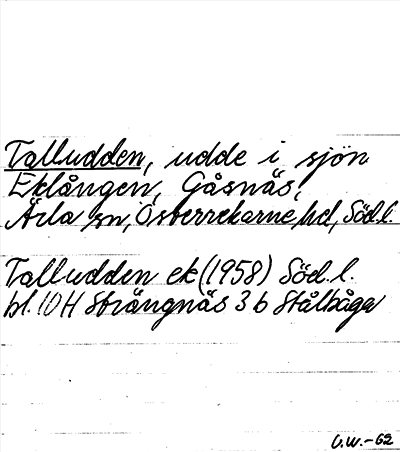 Talludden, udde i sjön
Eklången, Gåsnäs,
Ärla sn, Österrekarne hd, Söd.l.
Talludden ek (1958) Söd.l.
bl. 10H Strängnäs 3 b Stålbåga
U.W.-62